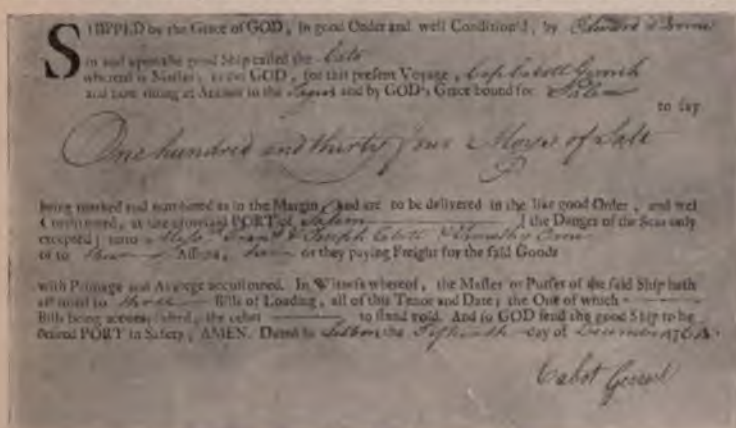 SHIPPED by the Grace of GOD, in good Order and well Condition'd, by
in and upon the good Ship called the
whereof is Master, under GOD, for this present Voyage, Cap. Cabott Gerrish
and now riding at Anchor in the Tagus and by GOD's Grace bound for Salem
to say
One hundred and thirty four Moyos of Salt
being marked and numbered as in the Margin, and are to be delivered in the like good Order, and wel
Conditioned, at the aforesaid PORT of Salem [the Danger of the Seas only
excepted] unto Mess. & Joseph Cabott &
or to their Assigns, or they paying Freight for the said Goods
with Primage and Avarage accustomed. In Witness whereof, the Master or Purser of the said Ship hath
affirmed to three Bills of Loading, all of this Tenor and Date; the One of which
Bills being accomplished, the other to stand void. And so GOD send the good Ship to be
desired PORT in Safety, AMEN. Dated in Lisbon the Fifteenth day of December 176
Cabot Gerrish